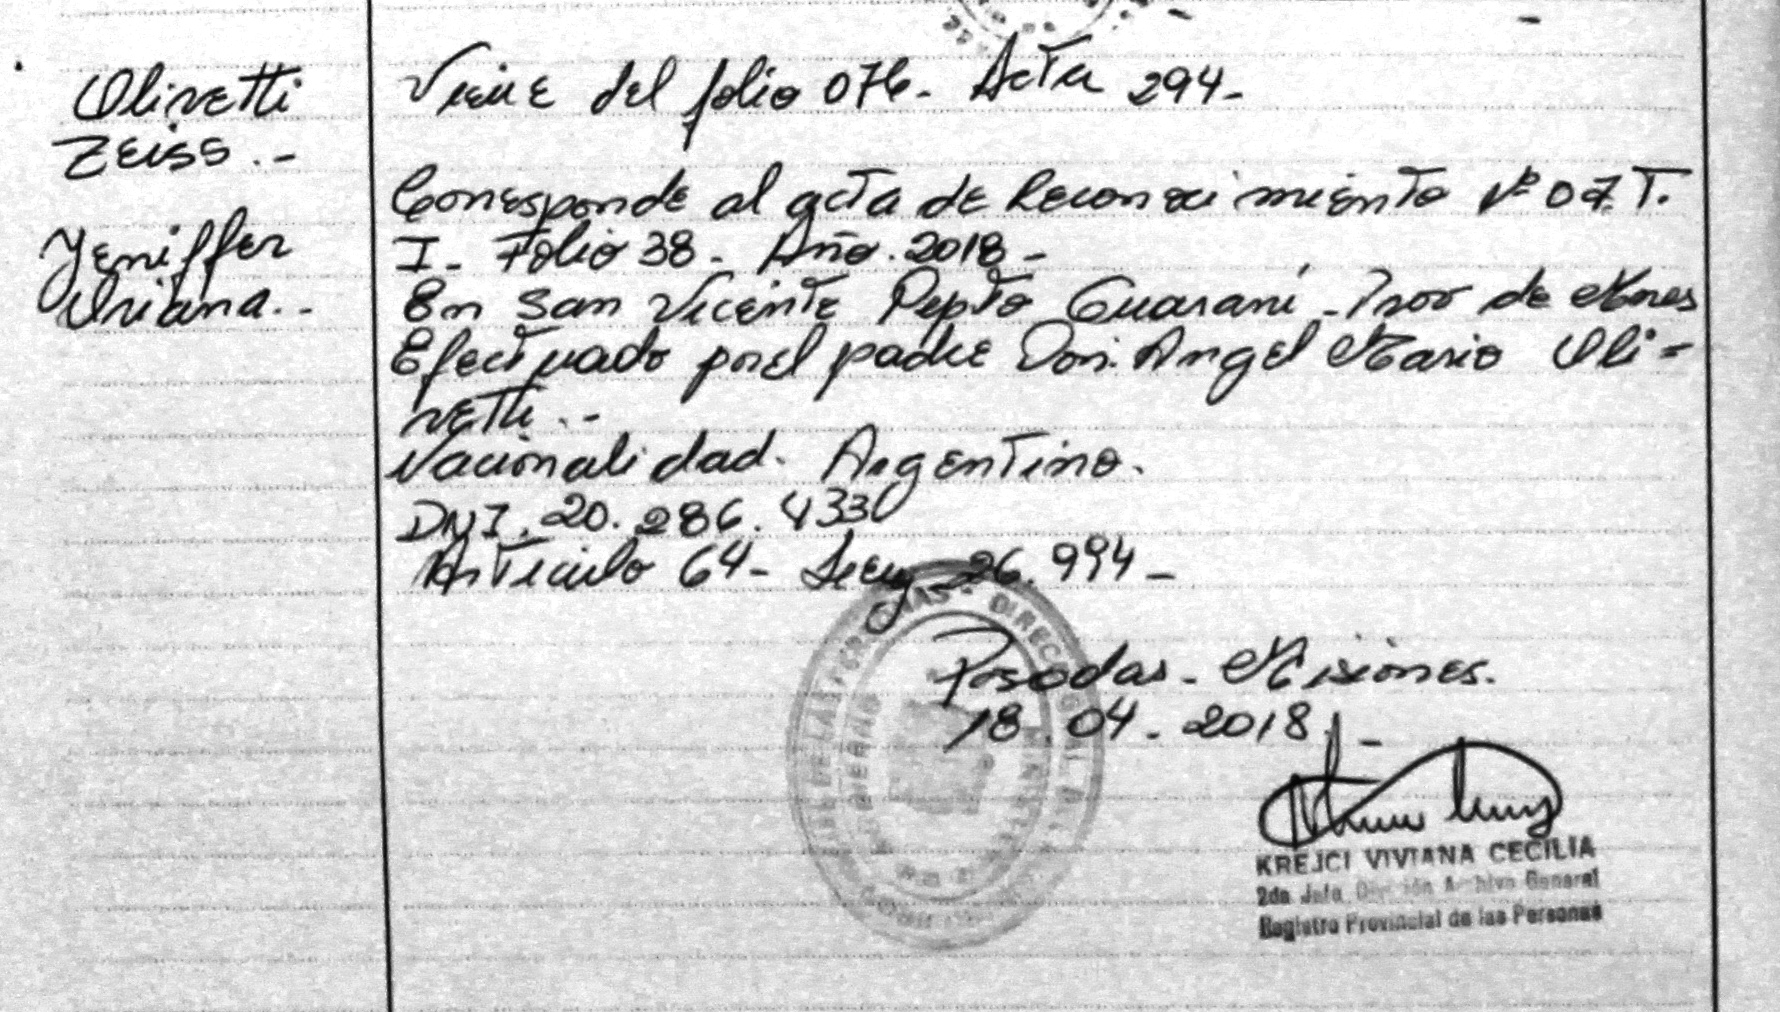 Olivetti
Zeiss.-
Yeniffer
Oriana.-
Viene del folio 076- Acta 294-
Corresponde al acta de Reconocimiento Nº 07. T.
I- Folio 38- Año. 2018-
En San Vicente Depto Guaraní- Prov de Mnes
Efectuado por el padre Don. Angel Mario Oli=
vetti.-
Nacionalidad. Argentino.
DNI. 20.286.433
Articulo 64- Ley 26.994-
Posadas- Misiones.
18.04-2018.-
KREJCI VIVIANA CECILIA
2da Jefa División Archivo General
Registro Provincial de las Personas
DE LAS PERSONAS - DIRECC